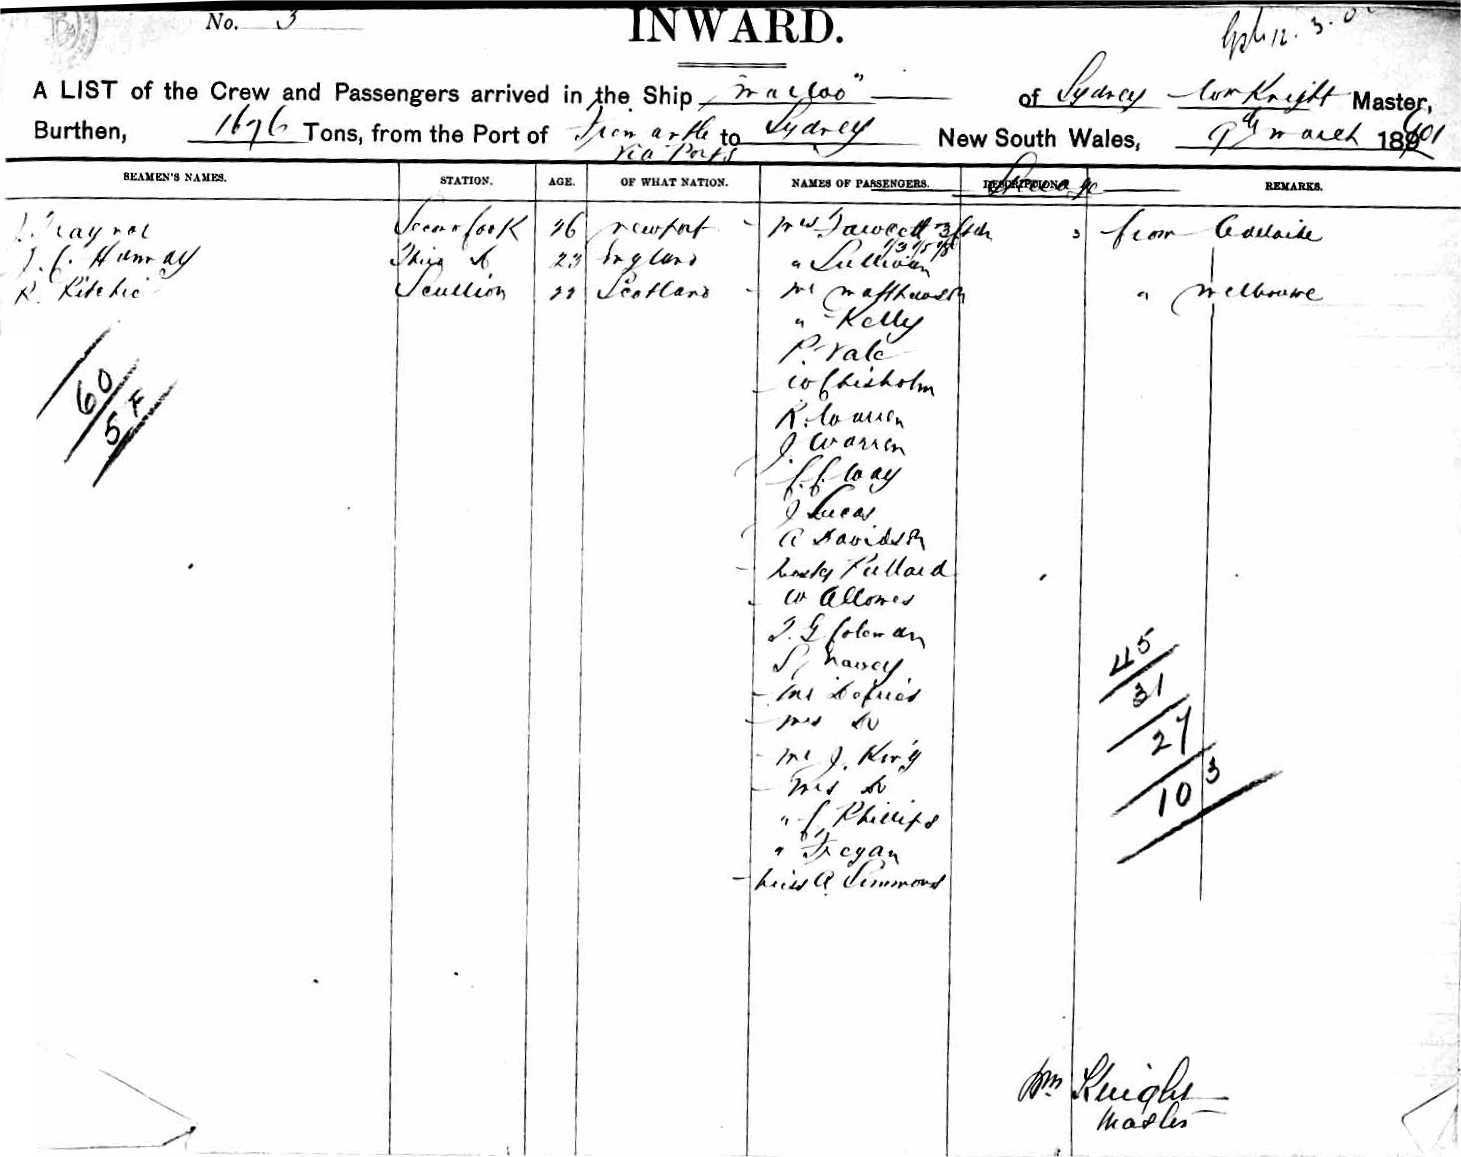 No. 3
INWARD.
12. 3. 0
A LIST of the Crew and Passengers arrived in the Ship "Marloo" of Sydney Wm Knight Master,
Burthen, 1676 Tons, from the Port of Fremantle to Sydney New South Wales, 9th March 1901
via Ports
SEAMEN'S NAMES. STATION. AGE. OF WHAT NATION. NAMES OF PASSENGERS. DESCRIPTION. REMARKS.
Steerage
Raynor Second Cook 26 Newport Mrs Fawcett 3 3 from Adelaide
J. C. Hannay Third Do 23 England " Sullivan
R. Ritchie Scullion 22 Scotland Mr Matthewson " Melbourne
" Kelly
P. Vale
W Chisholm
R. Warren
J. Warren
C. C. Way
J Lucas
A Davidson
Pullard
W Allomes
T. G Coleman
S.
Mr Defries
Mrs Do
Mr J. King
Mrs Do
" C Phillips
" Fregan
Miss A. Simmons
60
5 F
45
31
27
103
Wm Knight
Master